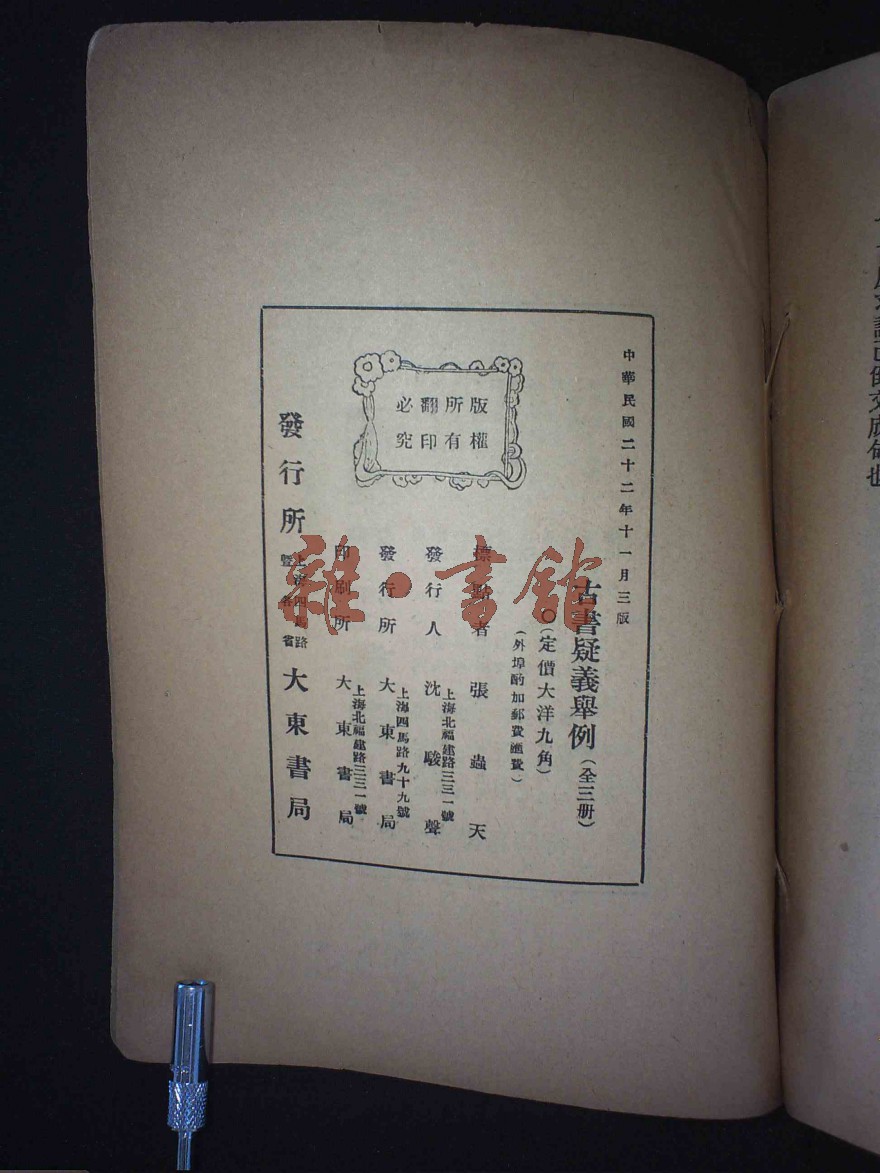 中華民國二十二年十一月三版
古書疑義舉例（全三册）
〇（定價大洋九角）
（外埠酌加郵費滙費）
版權
所有
翻印
必究
標點者 張蟲天
發行人 沈駿聲
上海北福建路三三一號
發行所 大東書局
上海四馬路九十九號
印刷所 大東書局
上海北福建路三三一號
發行所 上海四馬路暨各省 大東書局
雜·書館